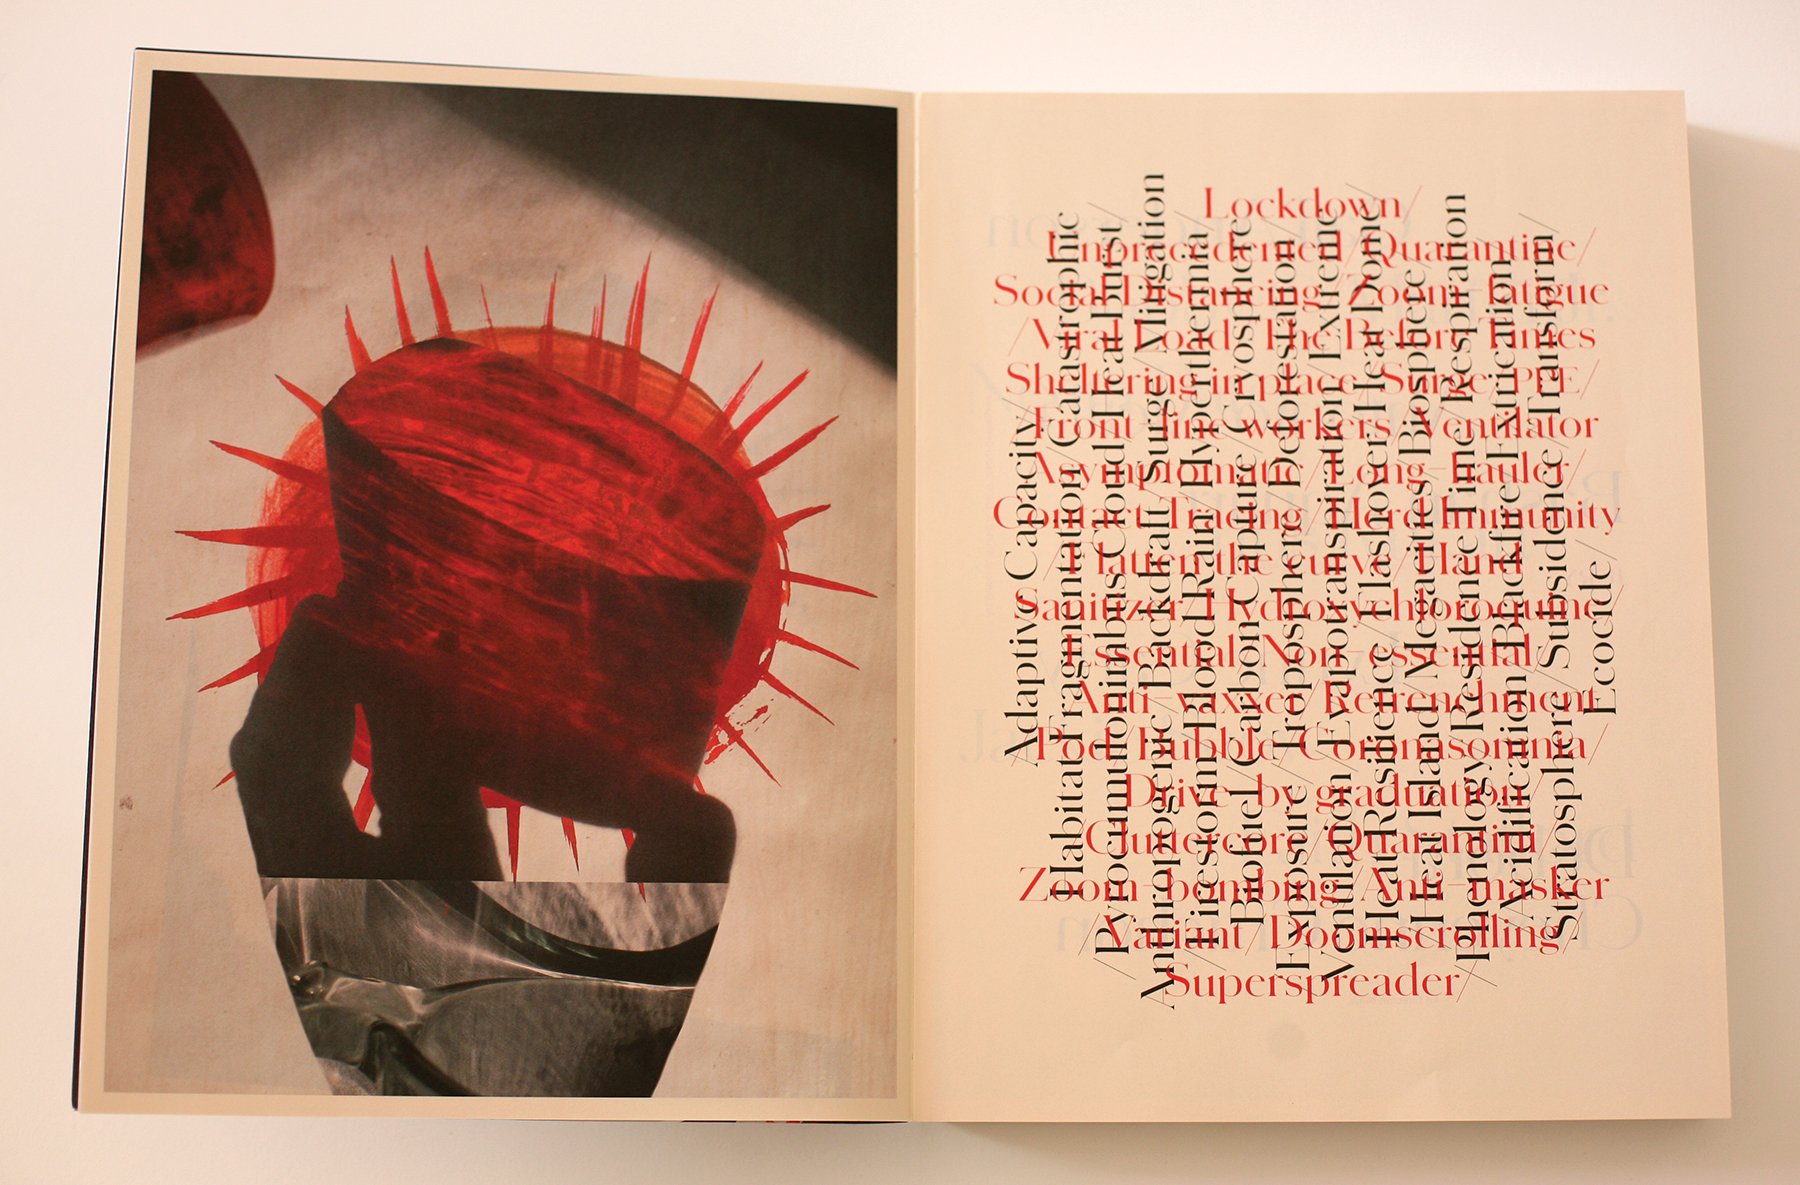 Lockdown/
Unprecedented/Quarantine/
Social Distancing/Zoom-fatigue
/Viral Load/The Before Times
Sheltering in place/Surge/PPE/
Front-line workers/Ventilator
Asymptomatic/Long-hauler/
Contact Tracing/Herd Immunity
/Flatten the curve/Hand
Sanitizer/Hydroxychloroquine/
Essential/Non-essential/
Anti-vaxxer/Retrenchment
Pod/bubble/Coronasomnia/
Drive-by graduation/
Cluttercore/Quarantini/
Zoom-bombing/Anti-masker
/Variant/Doomscrolling/
Superspreader/
Adaptive Capacity/
Habitat Fragmentation/Catastrophic
/Pyrocumulonimbus Cloud/Heat Burst
Anthropogenic/Backdraft/Surge/Mitigation
Firestorm/Blood Rain/Hyperthermia
Biofuel/Carbon Capture/Cryosphere
Exposure/Troposphere/Deforestation
Ventilation/Evapotranspiration/Extreme
Heat/Resilience/Flashover/Heat Dome
Heat Island/Megacities/Biosphere
Phenology/Residence Time/Respiration
Acidification/Blackfire/Extrication
Stratosphere/Subsidence/Transform
Ecocide/